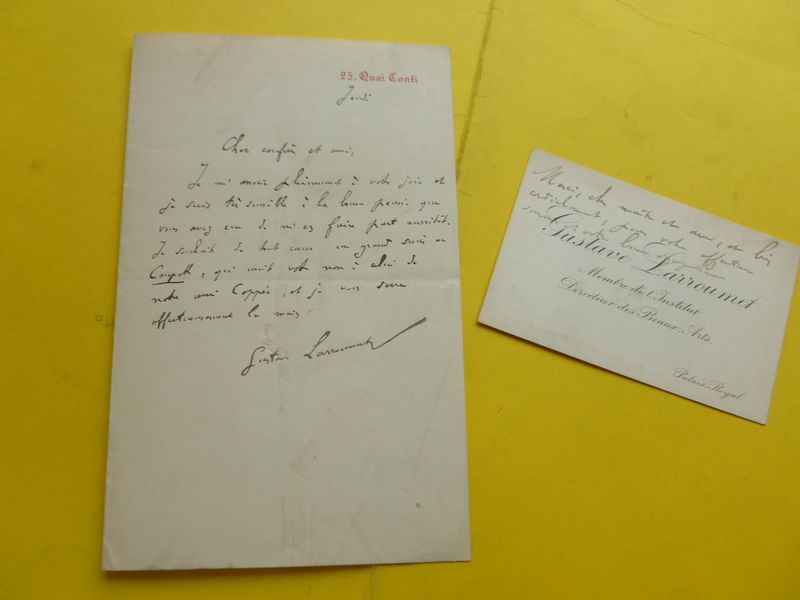 25, Quai Conti
Jeudi
Cher confrère et ami,
Je m'associe pleinement à votre joie et
je suis très sensible à la bonne pensée que
vous avez eue de m'en faire part aussitôt.
Je souhaite de tout cœur un grand succès au
, qui unit votre nom à celui de
notre ami Coppée, et je vous serre
affectueusement la main.
Gustave Larroumet
Merci, cher maître et ami, et bien
cordialement, pour votre affectueux
Gustave Larroumet
Membre de l'Institut
Directeur des Beaux-Arts
Palais-Royal